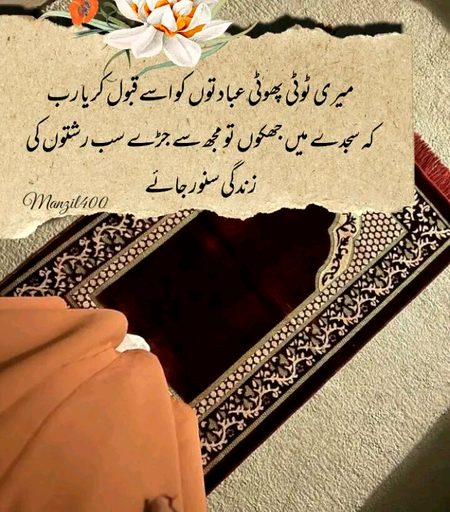 میری ٹوٹی پھوٹی عبادتوں کو اسے قبول کر یا رب
کہ سجدے میں جھکوں تو مجھ سے جڑے سب رشتوں کی
زندگی سنور جائے
Manzil400